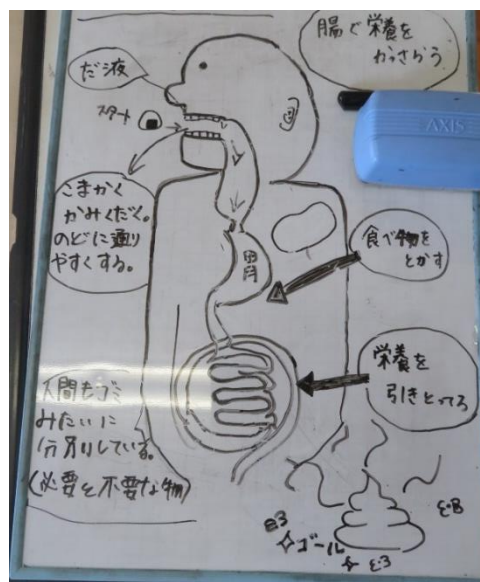 腸で栄養を
かっさらう
だ液
スタート
AXIS
こまかく
かみくだく。
のどに通り
やすくする。
胃
食べ物を
とかす
栄養を
引きとってる
人間もゴミ
みたいに
分別している。
(必要と不要な物)
ゴール